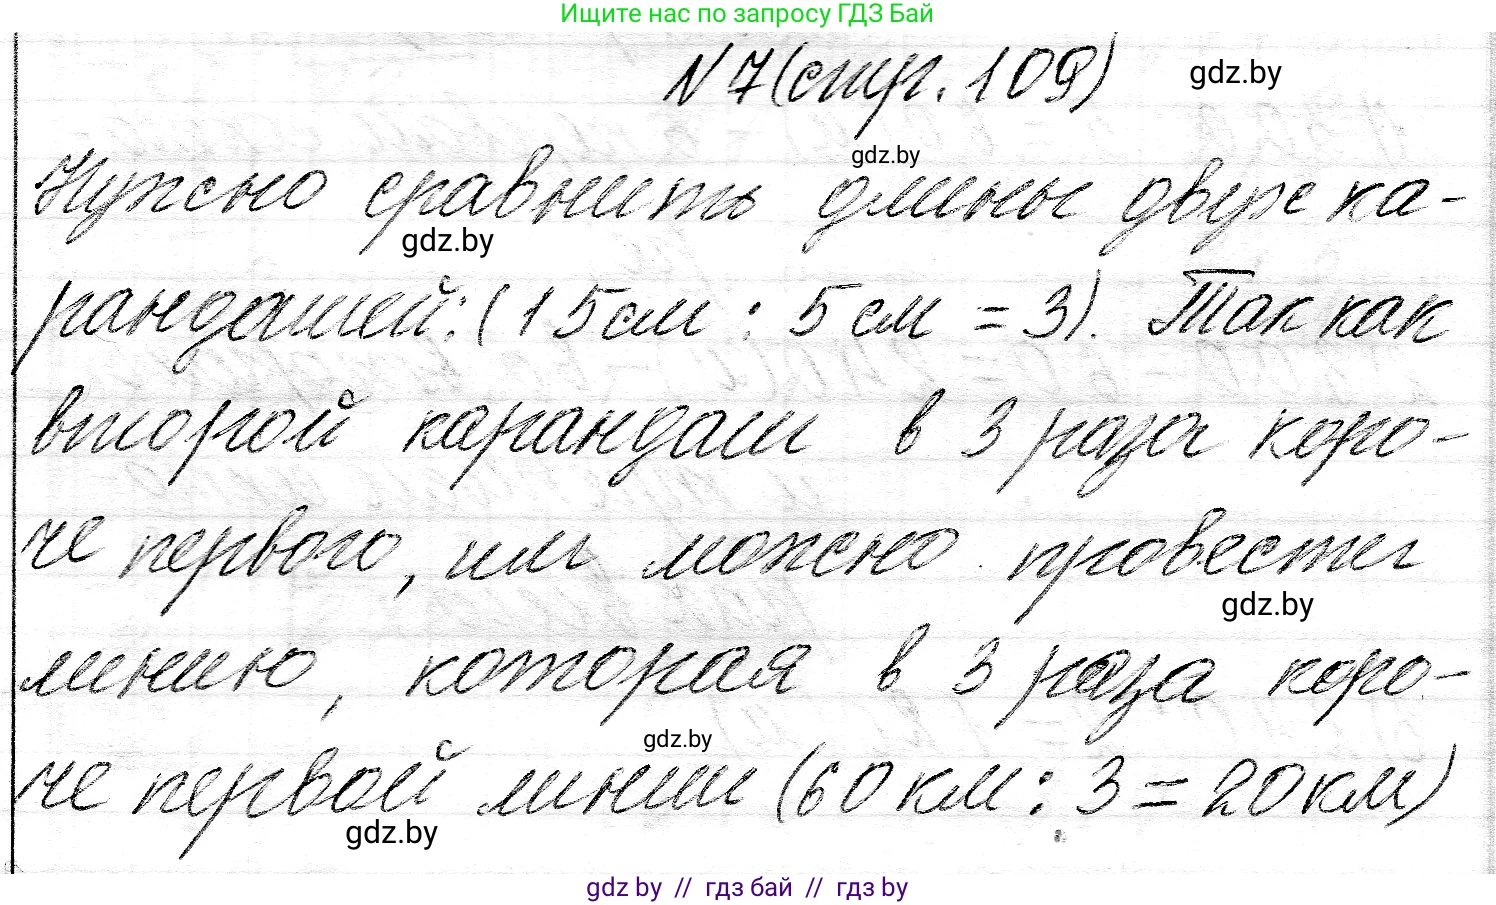 Ищите нас по запросу ГДЗ Бай
N 7 (стр. 109) gdz.by
gdz.by
Нужно сравнить длины двух ка-
gdz.by
рандашей: (15 см : 5 см = 3). Так как
второй карандаш в 3 раза коро-
че первого, или можно провести
gdz.by
линию, которая в 3 раза коро-
gdz.by
че первой линии (60 км : 3 = 20 км)
gdz.by
gdz by // гдз бай // гдз by